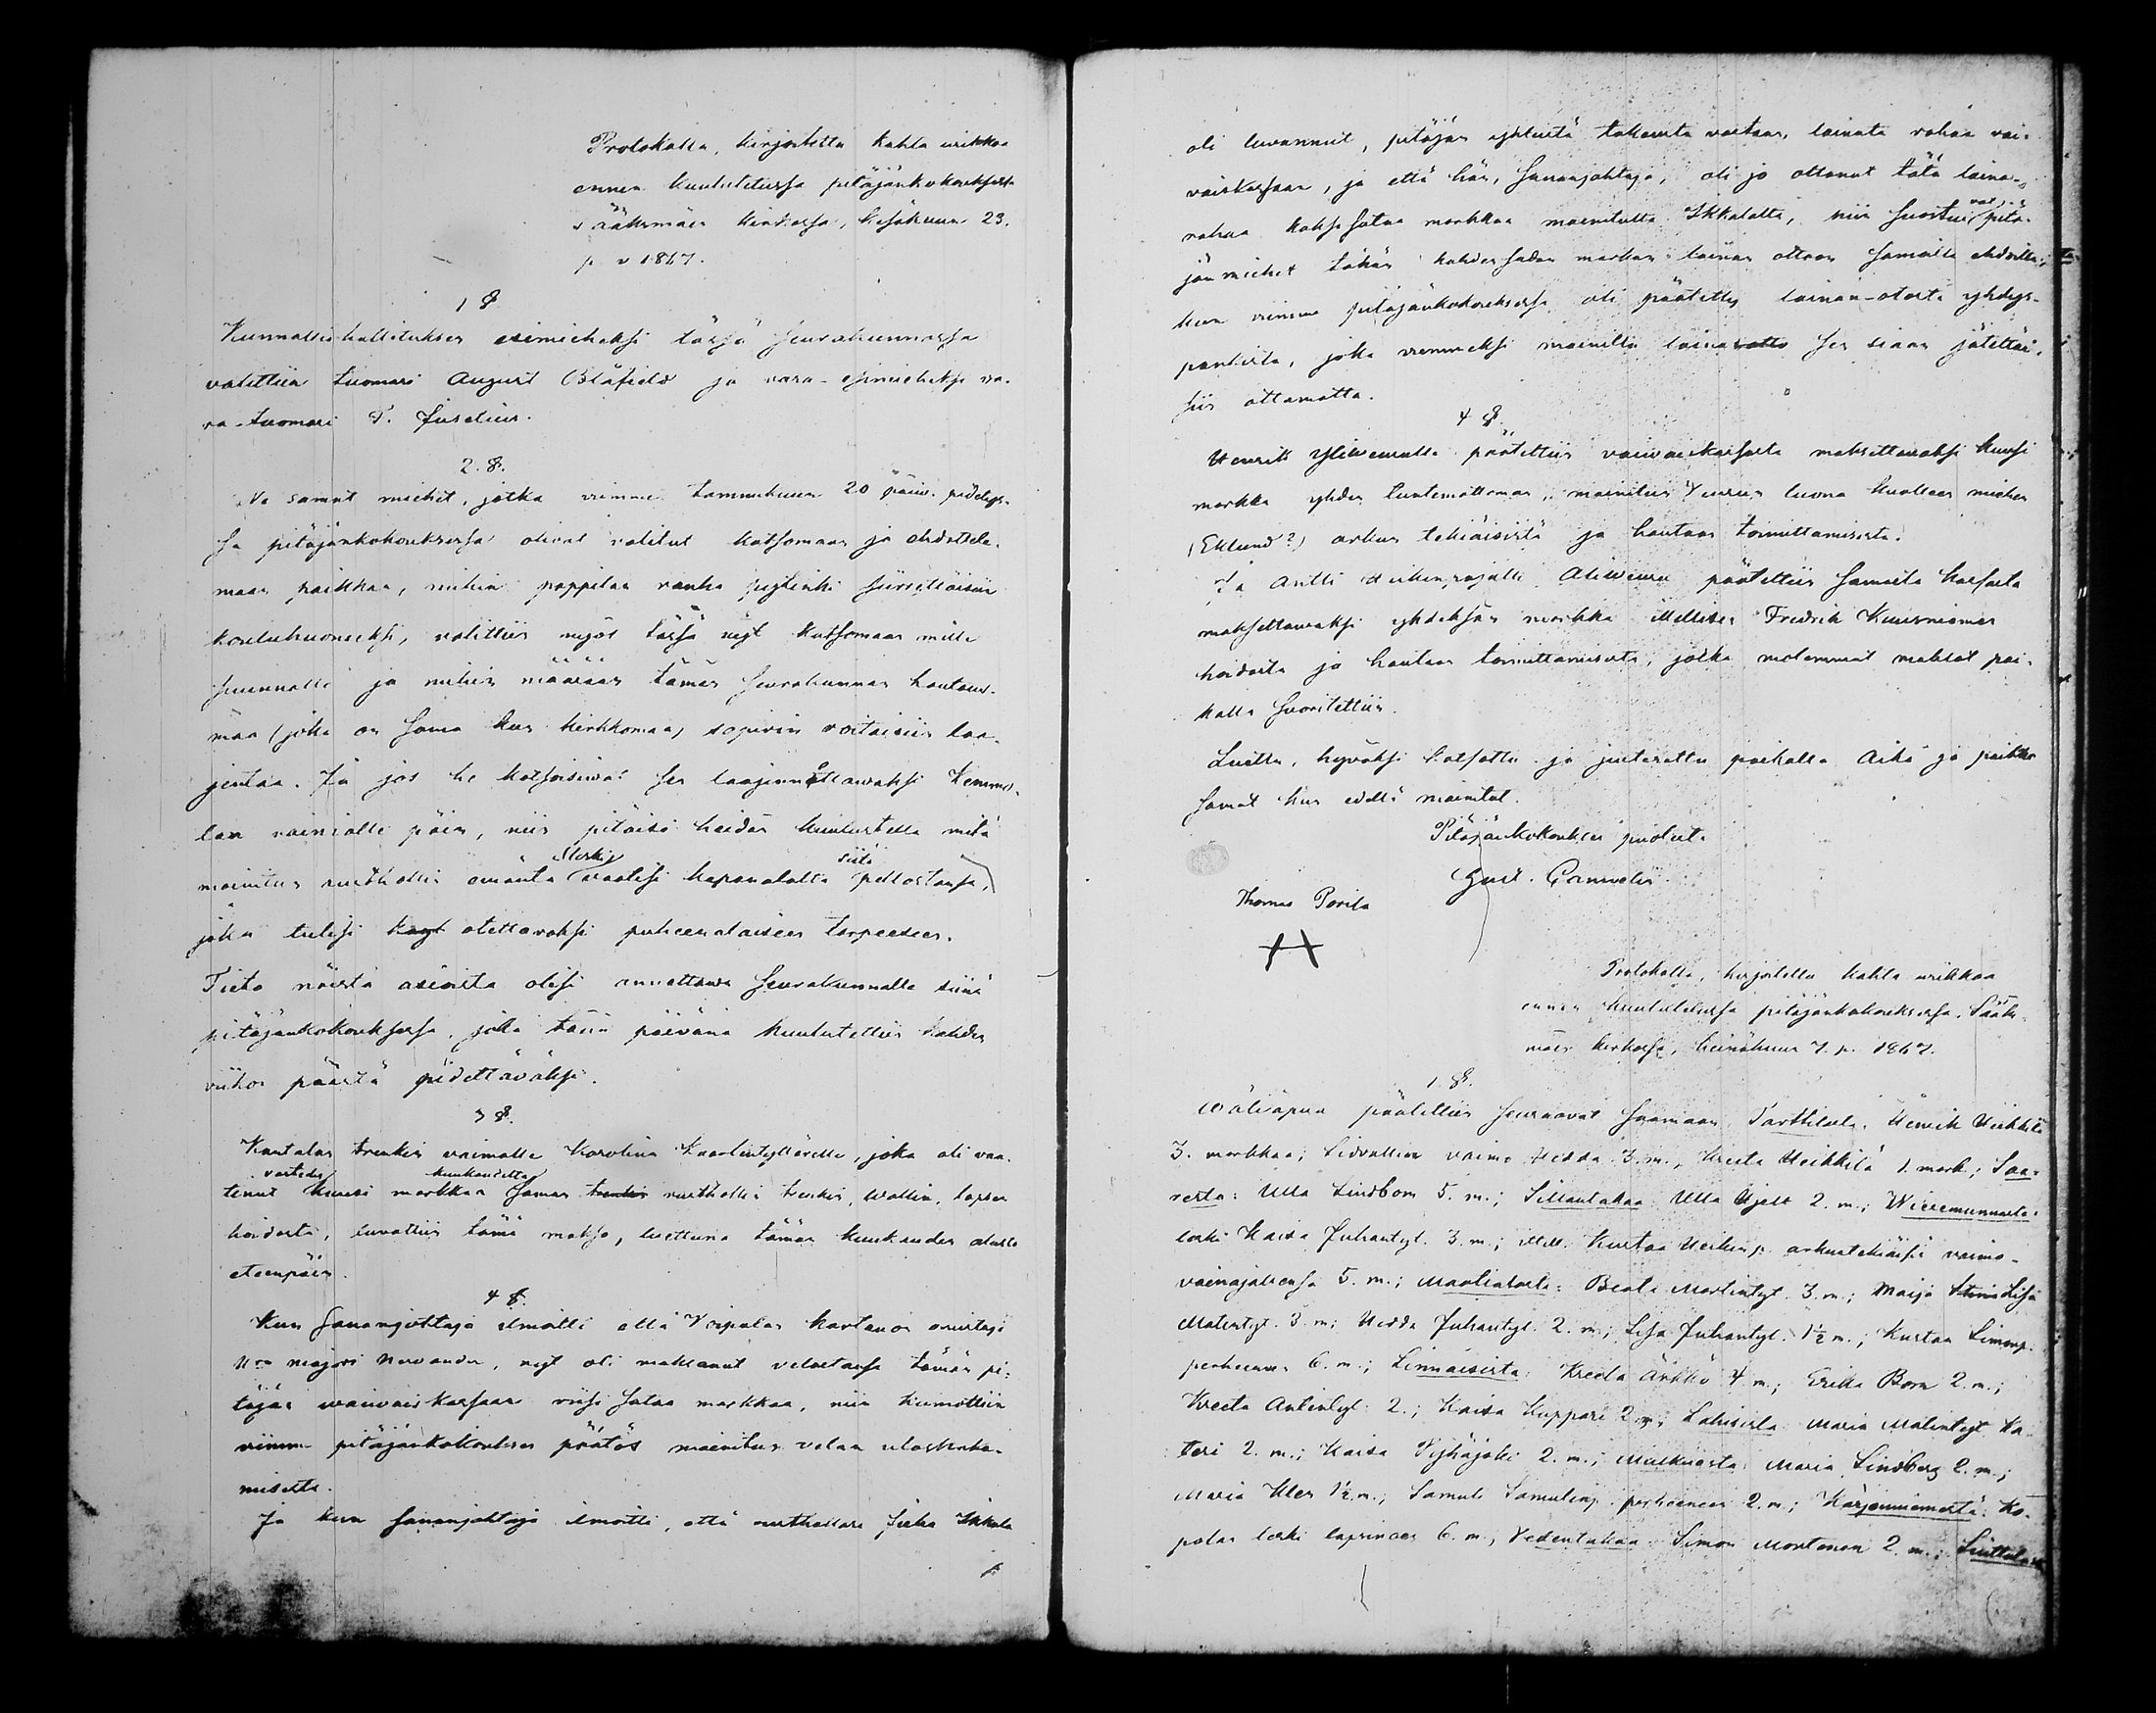 Protokolla, kirjoitettu kahta wiikkoa
ennen kuulutetussa pitäjänkokouksessa
Sääksmäen kirkossa, kesäkuun 23.
p v 1867.
1 §
Kunnallishallituksen esimieheksi tässä seurakunnassa
valittiin tuomari August Blåfield ja vara-esimieheksi va-
ra-tuomari P. Juselius.
2. §.
Ne samat miehet, jotka viimme tammikuun 20 päiw. pidetys-
sä pitäjänkokouksessa olivat valitut katsomaan ja ehdottele-
maan paikkaa, mihin pappilan vanha pytinki siirrettäisiin
kouluhuoneeksi, valittiin myös tässä nyt katsomaan mille
suunnalle ja mihin määrään tämän seurakunnan hautaus-
maa (joka on sama kun kirkkomaa) sopivin voitaisiin laa-
jentaa. Ja jos he katsoisivat sen laajennettavaksi Kemmo-
lan vainiolle päin, niin pitäisi heidän kuulustella mitä
mainitun rusthollin omanta vaatisi kapanalalta siitä pellostansa,
joka tulisi otettavaksi puheenalaiseen tarpeeseen.
Tieto näistä asioista olisi annettava seurakunnalle siinä
pitäjänkokouksessa, joka tänä päivänä kuulutettiin kahden
viikon päästä pidettäväksi.
3 §.
Kantalan trenkin vaimolle Karolina Kaarlentyttärelle, joka oli vaa-
tinut vastedes kuusi markkaa kuukaudelta saman trenkin rusthollin trenkin, Wallin, lapsen
hoidosta, luvattiin tämä makso, luettuna tämän kuukauden alusta
eteenpäin.
4 §.
Kun sananjohtaja ilmoitti että Voipalan kartanon omistaja
H:ra majori Nervander, nyt oli maksanut velastansa tämän pi-
täjän waivaiskassaan viisi sataa markkaa, niin kumottiin
viimme pitäjänkokouksen päätös mainitun velan uloshaka-
misesta.
Ja kun sananjohtaja ilmoitti, että rusthollari Juha Ikkala
oli luvannut, pitäjän yhteistä takausta vastaan, lainata rahaa vai-
vaiskassaan, ja että hän, sananjohtaja, oli jo ottanut tätä laina-
rahaa kaksisataa markkaa mainitulta Ikkalalta, niin suostuivat pitä-
jänmiehet tähän kahdensadan markan lainan ottoon samoilla ehdoilla,
kun viimme pitäjänkokouksessa oli päätetty lainan-otosta yhdys-
pankista, joka viimmeksi mainittu lainanotto sen siaan jätettäi-
siin ottamatta.
4 §.
Henrik Yliweuralle päätettiin vaivaiskassasta maksettavaksi kuusi
markka yhden tuntemattoman, mainitun Yveuran luona kuolleen miehen
(Eklund?) arkun tekiäisistä ja hautaan toimittamisesta.
Ja Antti Heikinpojalle Aliweura päätettiin samasta kassasta
maksettavaksi yhdeksän markka itsellisen Fredrik Kuusniemen
hoidosta ja hautaan toimittamisesta, jotka molemmat maksot pai-
kalla suoritettiin.
Luettu, hyväksi katsottu ja justerattu paikalla. Aika ja paikka
samat kun edellä mainitut.
Pitäjänkokouksen puolesta
Gust. Cannelin
Thomas Porila
Protokolla, kirjoitettu kahta wiikkoa
ennen kuulutetussa pitäjänkokouksessa Sääks-
mäen kirkossa, heinäkuun 7. p. 1867.
1 §.
Wäliapua päätettiin seuraavat saamaan: Tarttilasta: Henrik Heikkilä
3. markkaa; Lidvallin vaimo Hedda 3. m.; Kreeta Heikkilä 1. mark.; Saa-
resta: Ulla Lindbom 5. m.; Sillantakaa Ulla Hjelt 2. m.;
leski Kaisa Juhantyt. 3. m.; itsell. Kustaa Heikinp. arkuntekiäisiä vaimo-
vainajallensa 5. m.; Beata Martintyt. 3. m.; Maija Stina Lisa
Matintyt. 3. m; Hedda Juhantyt. 2. m.; Lisa Juhantyt. 1½ m.; Kustaa Simonp.
perheineen 6. m.; Linnaisista: Kreeta Ärkkö 4 m.; Erika Born 2. m.;
Kreeta Antintyt. 2.; Kaisa Kuppari 2 m.; Lahisista: Maria Matintyt. Ka-
teri 2. m.; Kaisa Pyhäjoki 2. m.; Maria Lindberg 2. m.;
Maria Kles 1½ m.; Samuli Samulinp. perheeneen 2. m.; Karjanniemestä: Ka-
palan leski lapsineen 6. m.; Vedentakaa: Simon Mortonen 2. m.;